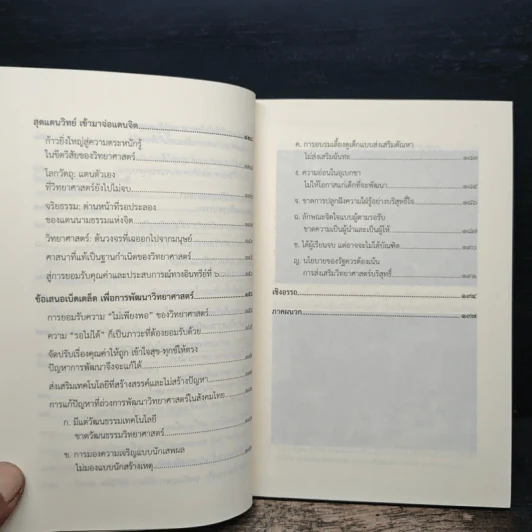 สุดแดนวิทย์ เข้ามาจ่อแดนจิต
ก้าวยิ่งใหญ่สู่ความตระหนักรู้
ในขีดวิสัยของวิทยาศาสตร์
โลกวัตถุ: แดนตัวเอง
ที่วิทยาศาสตร์ยังไปไม่จบ
จริยธรรม: ด่านหน้าที่รอประลอง
ของแดนนามธรรมแห่งจิต
วิทยาศาสตร์: ต้นวงจรที่เฉออกไปจากมนุษย์
ศาสนาที่แท้เป็นฐานกำเนิดของวิทยาศาสตร์
สู่การยอมรับคุณค่าและประสบการณ์ทางอินทรีย์ที่ ๖
ข้อเสนอเบ็ดเตล็ด เพื่อการพัฒนาวิทยาศาสตร์
การยอมรับความ "ไม่เพียงพอ" ของวิทยาศาสตร์
ความ "รอไม่ได้" ก็เป็นภาวะที่ต้องยอมรับด้วย
จัดปรับเรื่องคุณค่าให้ถูก เข้าใจสุข-ทุกข์ให้ตรง
ปัญหาการพัฒนาจึงจะแก้ได้
ส่งเสริมเทคโนโลยีที่สร้างสรรค์และไม่สร้างปัญหา
การแก้ปัญหาที่ถ่วงการพัฒนาวิทยาศาสตร์ในสังคมไทย
ก. มีแต่วัฒนธรรมเทคโนโลยี
ขาดวัฒนธรรมวิทยาศาสตร์
ข. การมองความเจริญแบบนักเสพผล
ไม่มองแบบนักสร้างเหตุ
ค. การอบรมเลี้ยงดูเด็กแบบส่งเสริมตัณหา
ไม่ส่งเสริมฉันทะ
ง. ความอ่อนในอุเบกขา
ไม่ให้โอกาสแก่เด็กที่จะพัฒนา
จ. ขาดการปลูกฝังความใฝ่รู้อย่างบริสุทธิ์ใจ
ฉ. ลักษณะจิตใจแบบผู้ตามรอรับ
ขาดความเป็นผู้นำและเป็นผู้ให้
ช. ได้ผู้เรียนจบ แต่อาจจะไม่ได้บัณฑิต
ญ. นโยบายของรัฐควรต้องเน้น
การส่งเสริมวิทยาศาสตร์บริสุทธิ์
เชิงอรรถ
ภาคผนวก